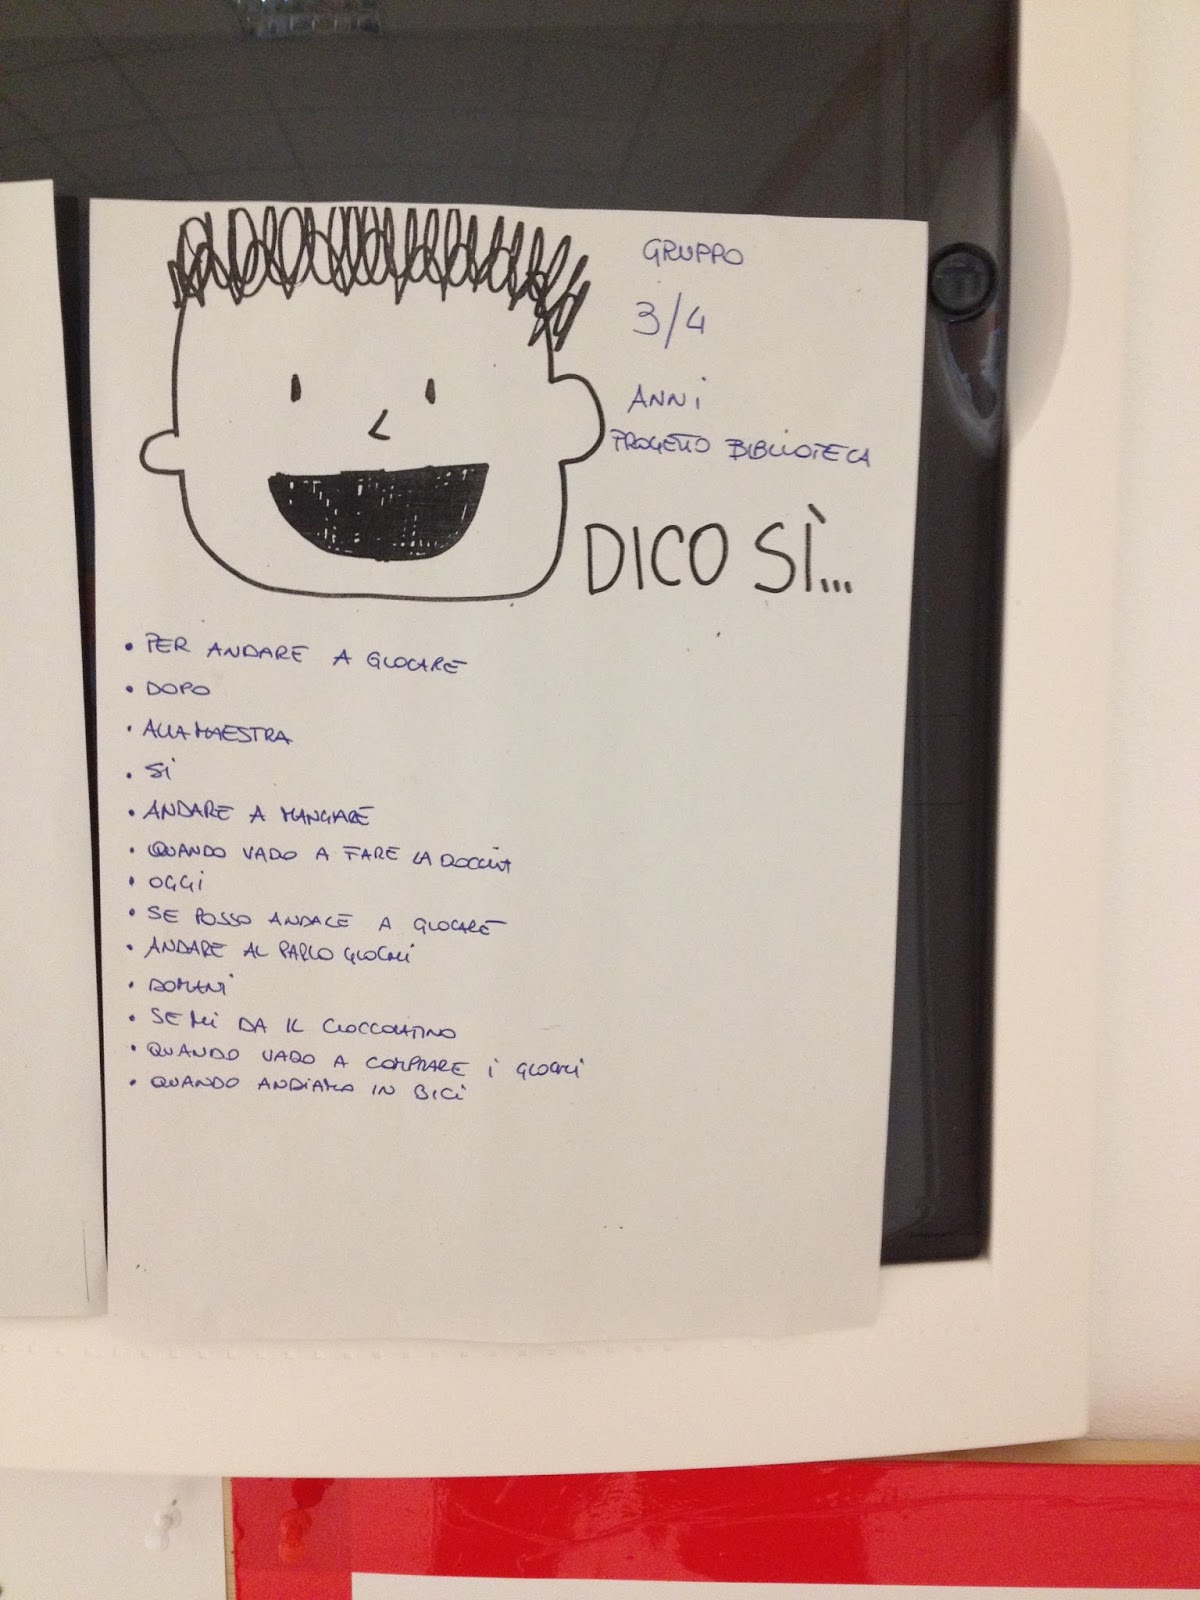 GRUPPO
3/4
ANNi
PROGETTO BIBLIOTECA
DICO SÌ...
• PER ANDARE A GIOCARE
• DOPO
• ALLA MAESTRA
• Si
• ANDARE A MANGIARE
• QUANDO VADO A FARE LA DOCCIA
• OGGi
• SE POSSO ANDARE A GIOCARE
• ANDARE AL PARCO GIOCHi
• DOMANi
• SE Mi DA IL CIOCCOLATINO
• QUANDO VADO A COMPRARE i GIOCHi
• QUANDO ANDIAMO IN BICi